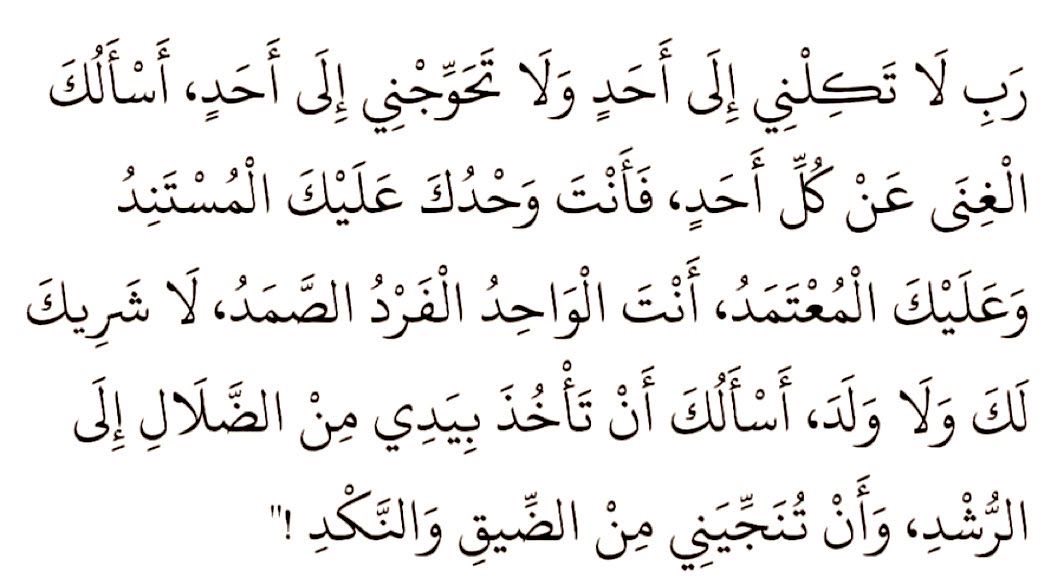 رَبِ لَا تَكِلْنِي إِلَى أَحَدٍ وَلَا تَحَوِّجْنِي إِلَى أَحَدٍ، أَسْأَلُكَ
الْغِنَى عَنْ كُلِّ أَحَدٍ، فَأَنْتَ وَحْدُكَ عَلَيْكَ الْمُسْتَنِدُ
وَعَلَيْكَ الْمُعْتَمَدُ، أَنْتَ الْوَاحِدُ الْفَرْدُ الصَّمَدُ، لَا شَرِيكَ
لَكَ وَلَا وَلَدَ، أَسْأَلُكَ أَنْ تَأْخُذَ بِيَدِي مِنْ الضَّلَالِ إِلَى
الرُّشْدِ، وَأَنْ تُنَجِّيَنِي مِنْ الضِّيقِ وَالنَّكْدِ !"